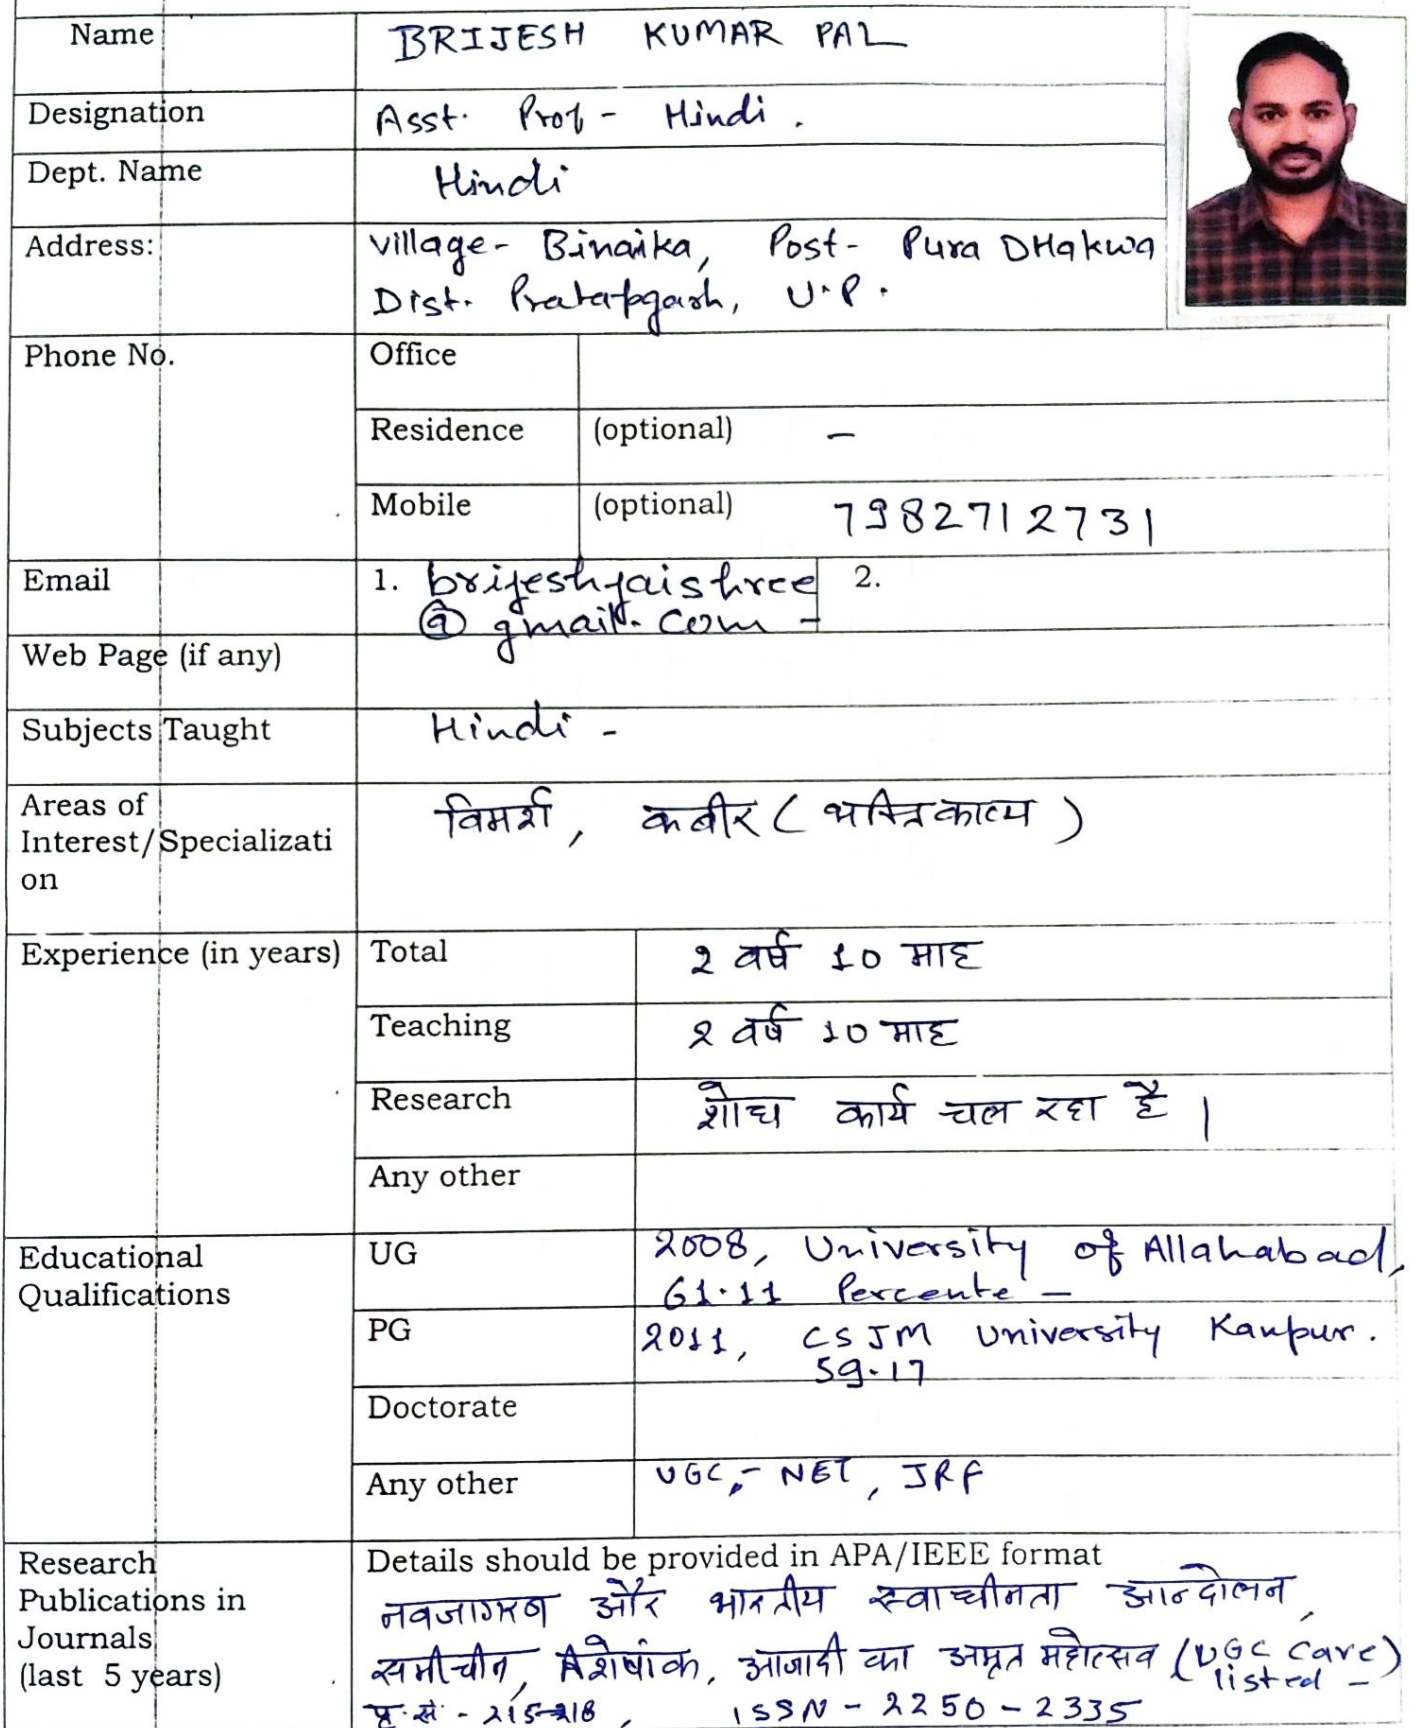 Name BRIJESH KUMAR PAL
Designation Asst. Prof - Hindi .
Dept. Name Hindi
Address: village - Binaika, Post - Pura DHakwa
Dist. Pratapgarh, U.P.
Phone No. Office
Residence (optional) –
Mobile (optional) 7982712731
Email 1. brijeshjaishree 2.
@ gmail. com -
Web Page (if any)
Subjects Taught Hindi -
Areas of
Interest/Specializati
on
विमर्श, कबीर ( भक्तिकाव्य )
Experience (in years) Total 2 वर्ष 10 माह
Teaching 2 वर्ष 10 माह
Research शोध कार्य चल रहा है |
Any other
Educational
Qualifications
UG 2008, University of Allahabad,
61.11 Percente -
PG 2011, CSJM University Kanpur.
59.17
Doctorate
Any other UGC - NET, JRF
Research
Publications in
Journals
(last 5 years)
Details should be provided in APA/IEEE format
नवजागरण और भारतीय स्वाधीनता आन्दोलन,
समीचीन, विशेषांक, आजादी का अमृत महोत्सव (UGC Care)
listed -
पृ. सं. - 215-218, ISSN - 2250 - 2335